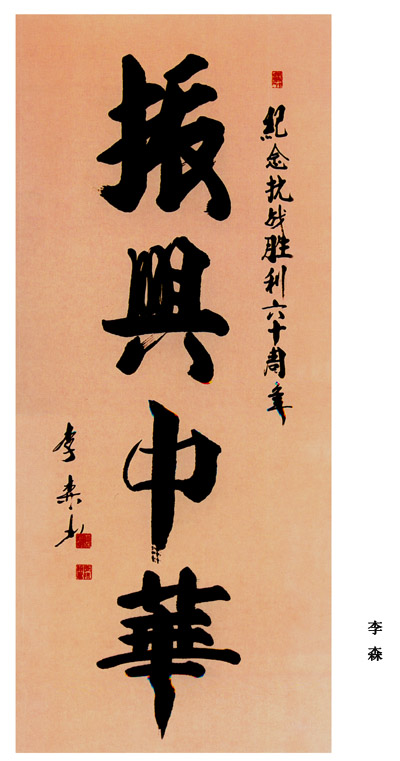 纪念抗战胜利六十周年
振興中華
李森书
李森